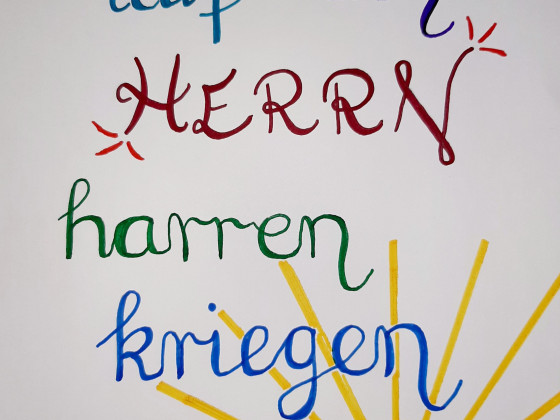 auf
HERRN
harren
kriegen